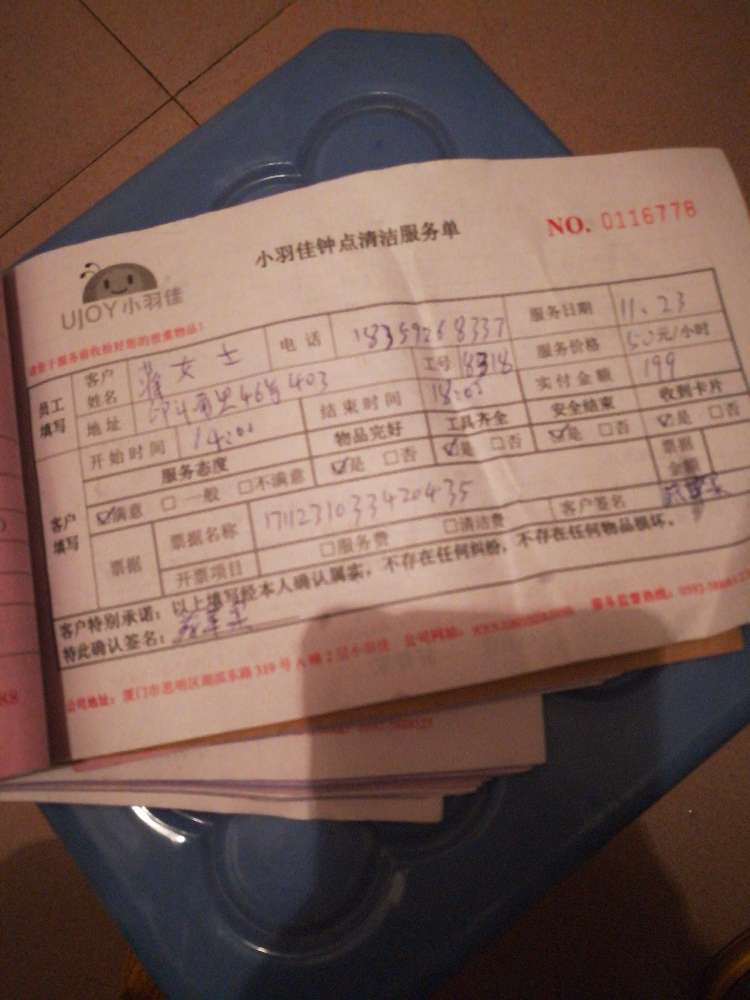 小羽佳钟点清洁服务单
NO. 0116778
UJOY小羽佳
员工填写
客户姓名 女士 电话 18359268337 服务日期 11.23
地址 46号403 工号 8318 服务价格 50元/小时
开始时间 14:00 结束时间 18:00 实付金额 199
客户填写
服务态度 物品完好 工具齐全 安全结束 收到卡片
☑满意 □一般 □不满意 ☑是 □否 ☑是 □否 ☑是 □否 ☑是 □否
票据 票据名称 1711231033420435 票据金额
开票项目 □服务费 □清洁费 客户签名
客户特别承诺：以上填写经本人确认属实，不存在任何纠纷，不存在任何物品损坏。
特此确认签名：
公司地址：厦门市思明区湖滨东路319号A幢2层小羽佳 公司网站： 服务监督热线：